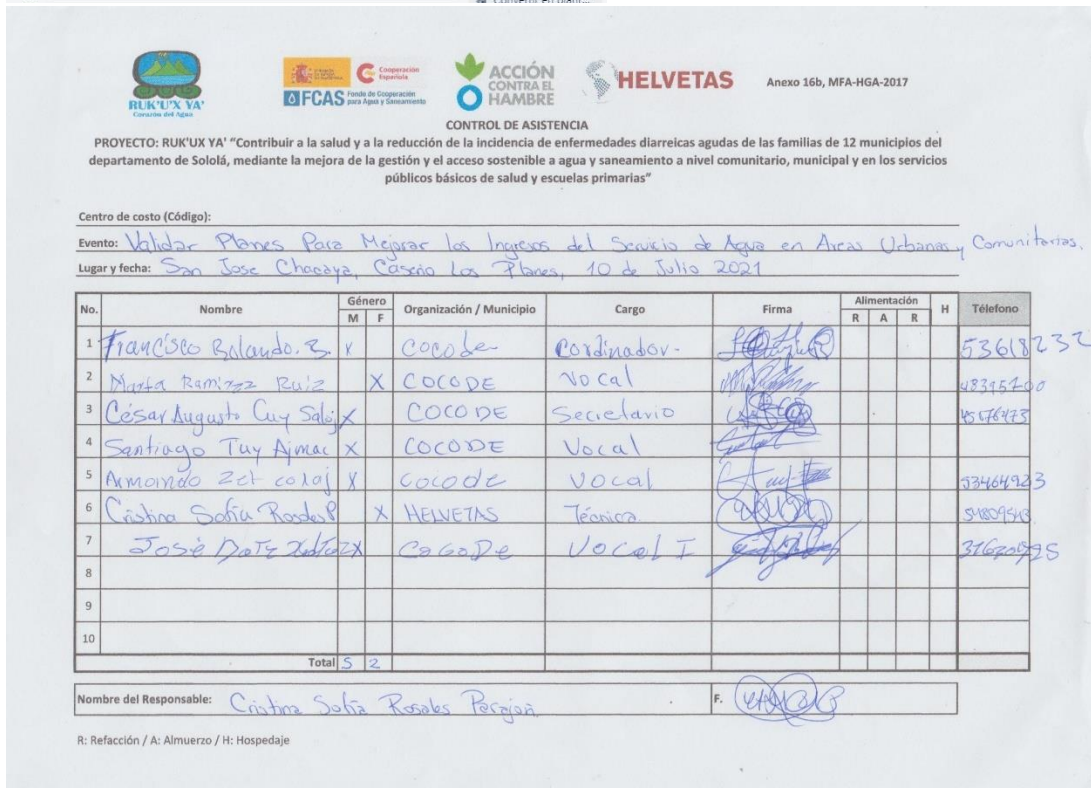 RUK'U'X YA'
Corazón del Agua
Cooperación Española
FCAS Fondo de Cooperación para Agua y Saneamiento
ACCIÓN CONTRA EL HAMBRE
HELVETAS
Anexo 16b, MFA-HGA-2017
CONTROL DE ASISTENCIA
PROYECTO: RUK'UX YA' "Contribuir a la salud y a la reducción de la incidencia de enfermedades diarreicas agudas de las familias de 12 municipios del
departamento de Sololá, mediante la mejora de la gestión y el acceso sostenible a agua y saneamiento a nivel comunitario, municipal y en los servicios
públicos básicos de salud y escuelas primarias"
Centro de costo (Código):
Evento: Validar Planes Para Mejorar los Ingresos del Servicio de Agua en Areas Urbanas y Comunitarias.
Lugar y fecha: San Jose Chacaya, Caserio Los Planes, 10 de Julio 2021
No. Nombre Género Organización / Municipio Cargo Firma Alimentación H Télefono
M F R A R
1 Francisco Rolando. B. X COCODE Cordinador- 53618232
2 Marta Ramirez Ruiz X COCODE Vocal
3 César Augusto Cuy X COCODE Secretario 45676473
4 Santiago Tuy Ajmac X COCODE Vocal
5 Armando Zet X cocode Vocal 53464923
6 Cristina Sofía Rosales P X HELVETAS Técnica 54809543
7 José X Vocal I
8
9
10
Total 5 2
Nombre del Responsable: Cristina Sofía Rosales F.
R: Refacción / A: Almuerzo / H: Hospedaje